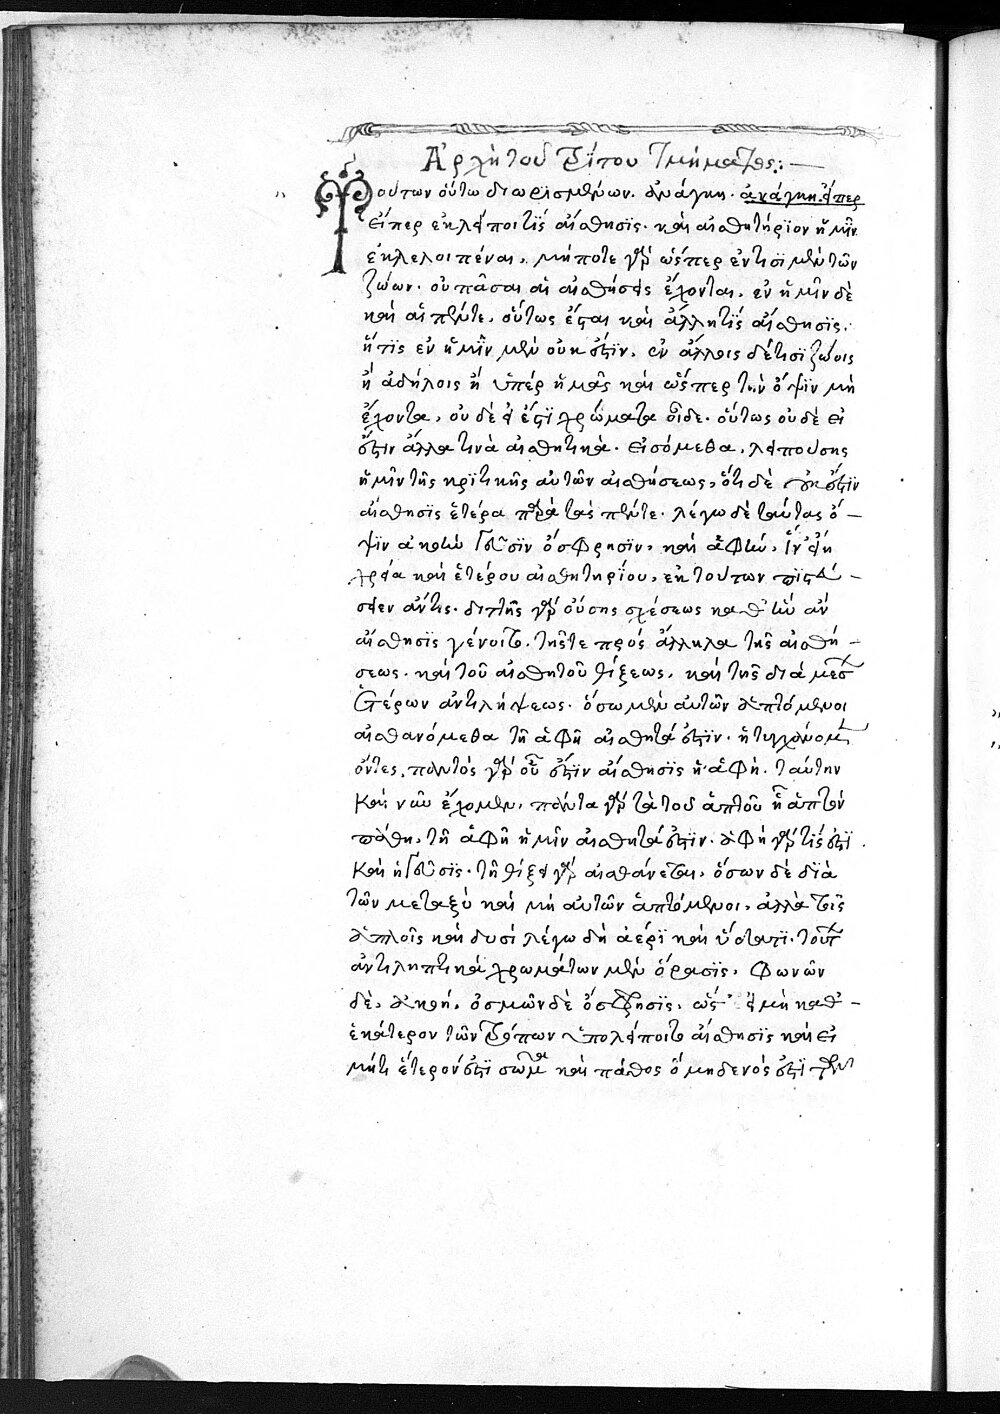 Ἀρχὴ τοῦ τρίτου τμήματος:—
Τούτων οὕτω διωρισμένων. ἀνάγκη. ἀνάγκη εἴπερ
εἴπερ ἐκλείποι τίς αἴσθησις. καὶ αἰσθητήριον ἡμῖν
ἐκλελοιπέναι, μήποτε γὰρ ὥσπερ ἐν τισὶ μὲν τῶν
ζώων. οὐ πᾶσαι αἱ αἰσθήσεις ἔχονται, ἐν ἡμῖν δὲ
καὶ αἱ πέντε, οὕτως ἔσται καὶ ἄλλη τίς αἴσθησις,
ἥτις ἐν ἡμῖν μὲν οὐκ ἔστιν, ἐν ἄλλοις δέ τισι ζώοις
ἢ ἀδήλοις ἢ ὑπὲρ ἡμᾶς καὶ ὥσπερ τὴν ὄψιν μὴ
ἔχοντα, οὐδὲ εἰ ἔστι χρώματα οἶδε. οὕτως οὐδὲ εἰ
ἔστιν ἄλλα τινὰ αἰσθητικὰ. εἰσόμεθα, λειπούσης
ἡμῖν τῆς κριτικῆς αὐτῶν αἰσθήσεως, ὅτι δὲ οὐκ ἔστιν
αἴσθησις ἑτέρα παρὰ τὰς πέντε. λέγω δὲ ταύτας ὄ–
ψιν ἀκοὴν γεῦσιν ὄσφρησιν, καὶ ἁφήν, ἵν' εἴη
χρεία καὶ ἑτέρου αἰσθητηρίου, ἐκ τούτων πιστεύ–
σειεν ἄν τις. διττῆς γὰρ οὔσης σχέσεως καθ' ἣν ἂν
αἴσθησις γένοιτο. τῆς τε πρὸς ἄλληλα τῆς αἰσθή–
σεως. καὶ τοῦ αἰσθητοῦ θίξεως, καὶ τῆς διὰ μέσου
ἑτέρων ἀντιλήψεως. ὅσω μὲν αὐτῶν ἁπτόμενοι
αἰσθανόμεθα τῆ ἁφῆ αἰσθητά ἐστιν. ἣ τυγχάνομεν
ὄντες, παντὸς γὰρ οὗ ἐστὶν αἴσθησις ἡ ἁφὴ. ταύτην
καὶ νῦν ἔχομεν, πάντα γὰρ τὰ τοῦ ἁπτοῦ ᾗ ἁπτὸν
πάθη, τῆ ἁφῆ ἡμῖν αἰσθητά ἐστιν. ἁφὴ γάρ τίς ἐστι
καὶ ἡ γεῦσις. τῆ θίξει γὰρ αἰσθάνεται, ὅσων δὲ διὰ
τῶν μεταξὺ καὶ μὴ αὐτῶν ἁπτόμενοι, ἀλλὰ τοῖς
ἁπλοῖς καὶ δυσὶ λέγω δὴ ἀέρι καὶ ὕδατι. τούτων
ἀντιληπτικὰ χρωμάτων μὲν ὅρασις, φωνῶν
δὲ, ἀκοὴ, ὀσμῶν δὲ ὄσφρησις, ὡς εἰ μὴ καθ' –
ἑκάτερον τῶν τρόπων ὑπολείποιτο αἴσθησις καὶ εἰ
μήτι ἕτερόν ἐστι σῶμα καὶ πάθος ὃ μηδενός ἐστι τῶν